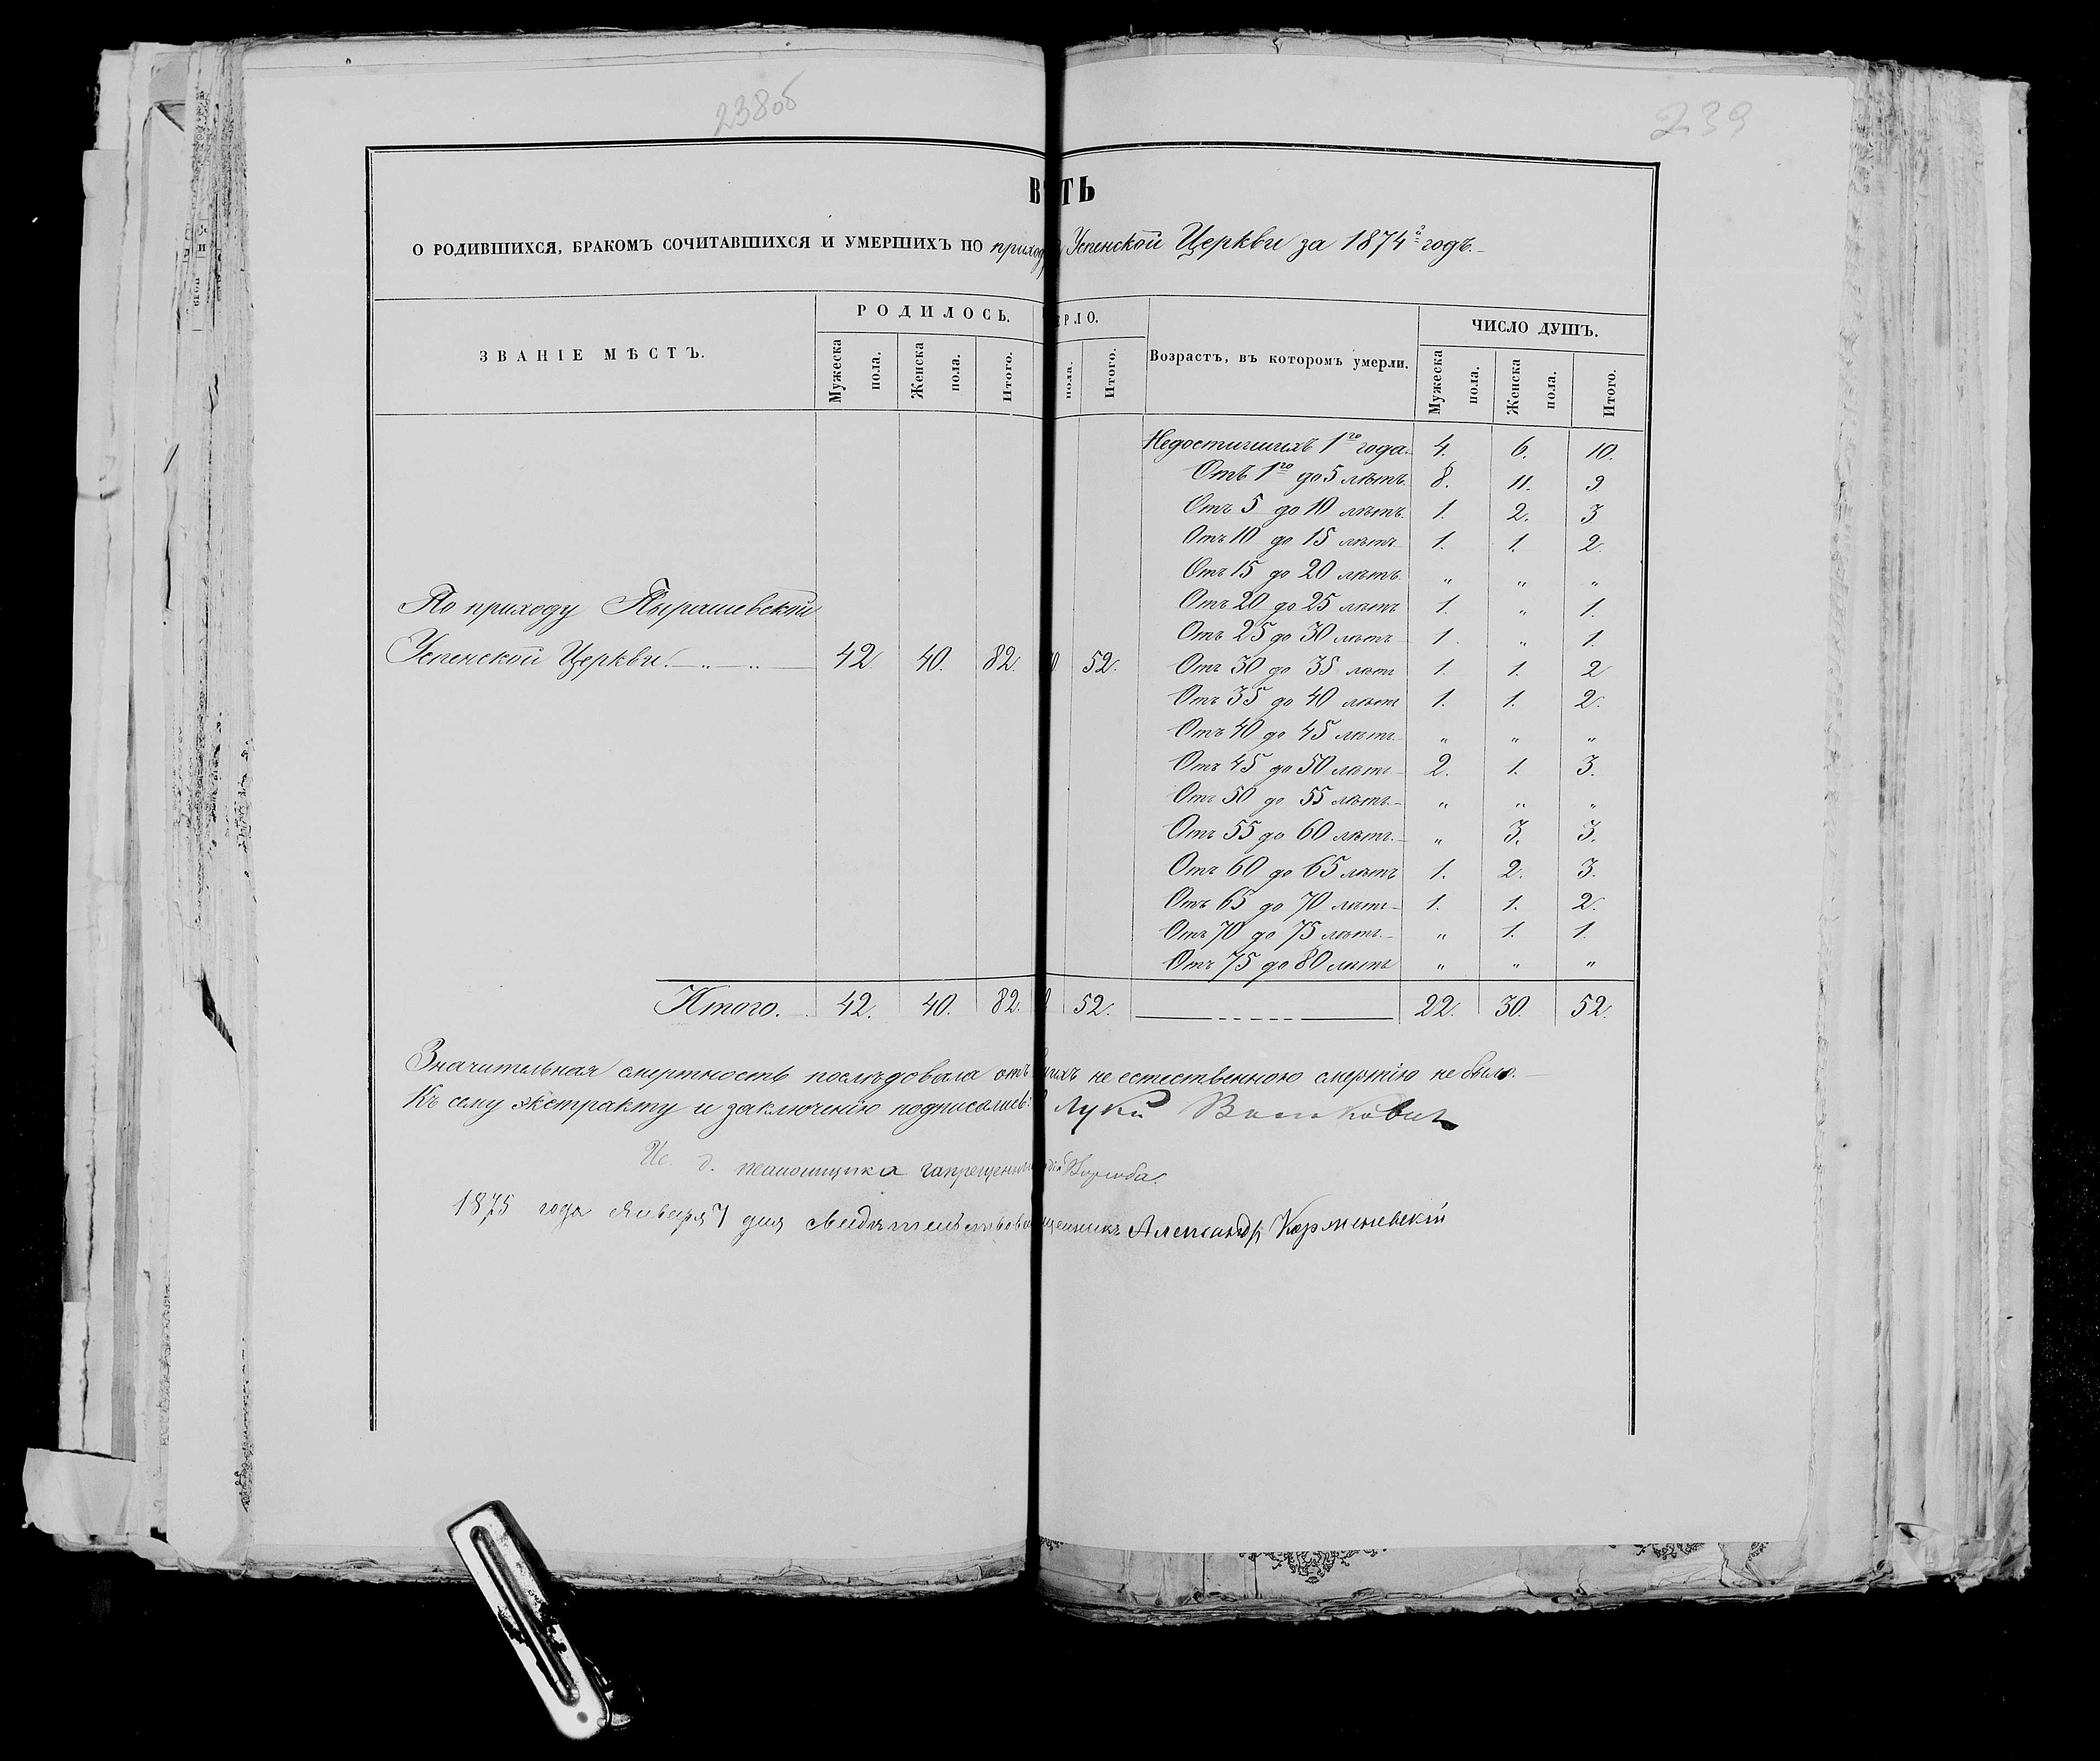 238об
239
В ТЬ
О РОДИВШИХСЯ, БРАКОМЪ СОЧИТАВШИХСЯ И УМЕРШИХЪ ПО приходу Успенской Церкви за 1874й годъ.
ЗВАНІЕ МѢСТЪ. РОДИЛОСЬ. ЕРЛО. Возрастъ, въ которомъ умерли. ЧИСЛО ДУШЪ.
Мужеска пола. Женска пола. Итого. пола. Итого. Мужеска пола. Женска пола. Итого.
Недостигшихъ 1го года. 4. 6. 10.
Отъ 1го до 5 лѣтъ. 8. 11. 9
Отъ 5 до 10 лѣтъ. 1. 2. 3
Отъ 10 до 15 лѣтъ 1. 1. 2.
Отъ 15 до 20 лѣтъ. " " "
Отъ 20 до 25 лѣтъ 1. " 1.
Отъ 25 до 30 лѣтъ 1. " 1.
Отъ 30 до 35 лѣтъ 1. 1. 2
Отъ 35 до 40 лѣтъ 1. 1. 2.
Отъ 40 до 45 лѣтъ. " " "
Отъ 45 до 50 лѣтъ. 2. 1. 3.
Отъ 50 до 55 лѣтъ. " " "
Отъ 55 до 60 лѣтъ. " 3. 3.
Отъ 60 до 65 лѣтъ 1. 2. 3.
Отъ 65 до 70 лѣтъ 1. 1. 2.
Отъ 70 до 75 лѣтъ. " 1. 1.
Отъ 75 до 80 лѣтъ " " "
По приходу Пырашевской
Успенской Церкви. " " 42 40. 82. 0. 52.
Итого. 42. 40. 82. 52. 22. 30. 52.
Значительная смертность послѣдовала отъ шихъ не естественною смертію не было.
Къ сему экстракту и заключенію подписались: Лука
Ис. д. псаломщика запрещенный
1875 года Января 7 дня свидѣтельствовалъ щенникъ Александръ